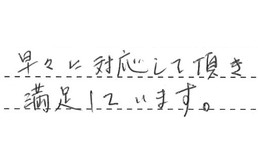 早々に対応して頂き
満足しています。